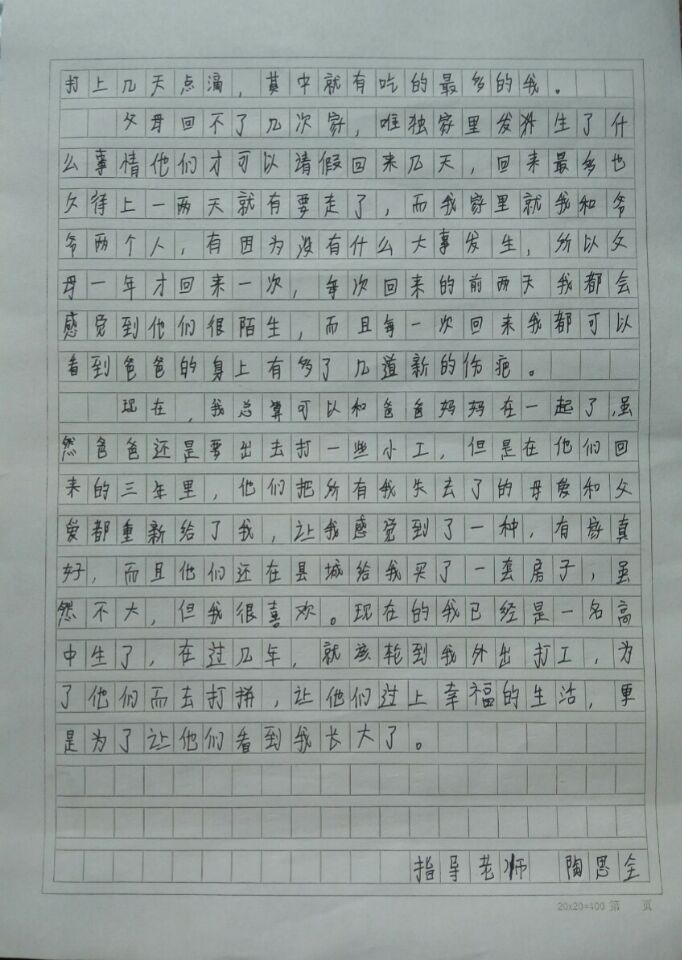 打上几天点滴，其中就有吃的最多的我。
父母回不了几次家，唯独家里发生了什
么事情他们才可以请假回来几天，回来最多也
欠待上一两天就有要走了，而我家里就我和爷
爷两个人，有因为没有什么大事发生，所以父
母一年才回来一次，每次回来的前两天我都会
感觉到他们很陌生，而且每一次回来我都可以
看到爸爸的身上有多了几道新的伤疤。
现在，我总算可以和爸爸妈妈在一起了，虽
然爸爸还是要出去打一些小工，但是在他们回
来的三年里，他们把所有我失去了的母爱和父
爱都重新给了我，让我感觉到了一种，有家真
好，而且他们还在县城给我买了一套房子，虽
然不大，但我很喜欢。现在的我已经是一名高
中生了，在过几年，就该轮到我外出打工，为
了他们而去打拼，让他们过上幸福的生活，更
是为了让他们看到我长大了。
指导老师 陶恩全
20×20=400 第 页